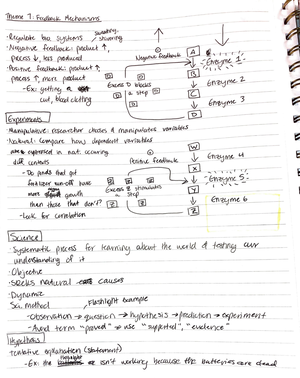 Theme 7: Feedback Mechanisms
- Regulate bio systems
sweating, shivering
- Negative feedback: product ↑,
process ↓, less produced
- Positive feedback: product ↑
process ↑, more product
- Ex: getting a
cut, blood clotting
Negative Feedback
A
Enzyme 1
B
Enzyme 2
C
Enzyme 3
D
Excess D blocks
a step
D
D
D
Experiments
- Manipulative: researcher chooses & manipulates variables
- Natural: Compare how dependent variables
expressed in nat. occurring
diff contexts
- Do ponds that get
fertilizer run-off have
more growth
than those that don't?
- Look for correlation
Positive Feedback
W
Enzyme 4
X
Enzyme 5
Y
Enzyme 6
Z
Excess Z stimulates
a step
Z
Z
Z
Science
- Systematic process for learning about the world & testing our
understanding of it
- Objective
- Seeks natural causes
- Dynamic
- Sci. method
Flashlight example
- Observation → question → hypothesis → prediction → experiment
- Avoid term "proved" → use "supported", "evidence"
Hypothesis
Tentative explanation (statement)
- Ex: the flashlight isn't working because the batteries are dead